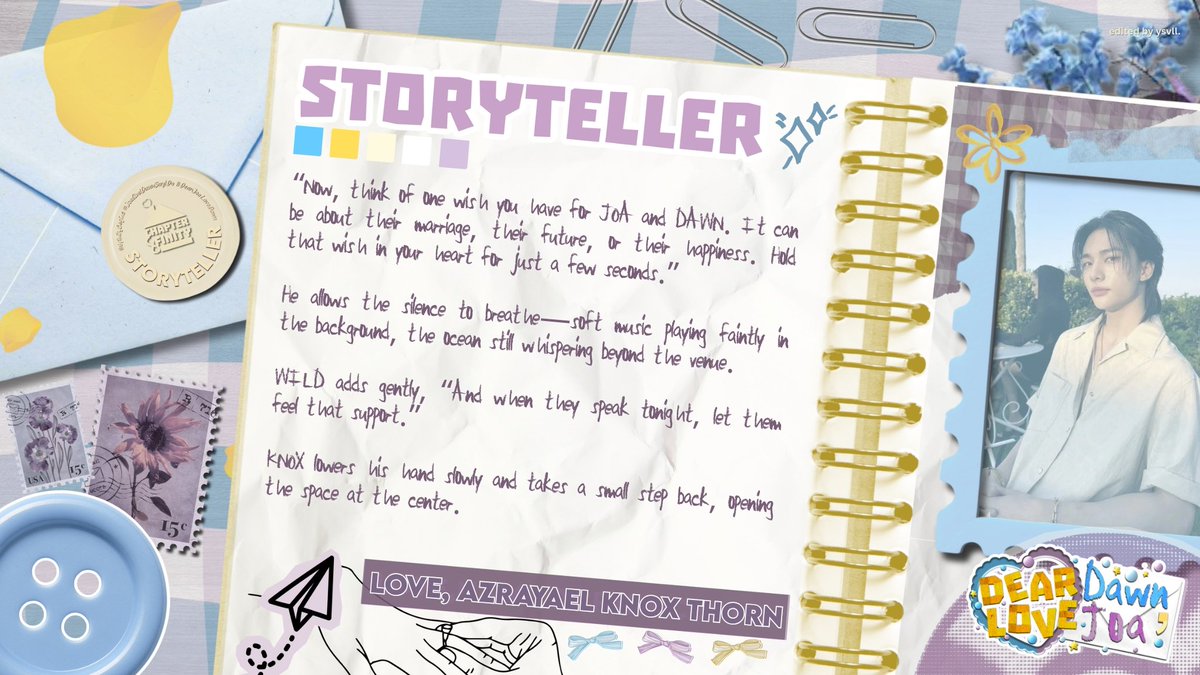 edited by ysvll.
STORYTELLER
“Now, think of one wish you have for JOA and DAWN. It can
be about their marriage, their future, or their happiness. Hold
that wish in your heart for just a few seconds.”
He allows the silence to breathe—soft music playing faintly in
the background, the ocean still whispering beyond the venue.
WILD adds gently, “And when they speak tonight, let them
feel that support.”
KNOX lowers his hand slowly and takes a small step back, opening
the space at the center.
LOVE, AZRAYAEL KNOX THORN
CHAPTER
FINITY
STORYTELLER
USA
15c
15c
DEAR
LOVE
Dawn
Joa